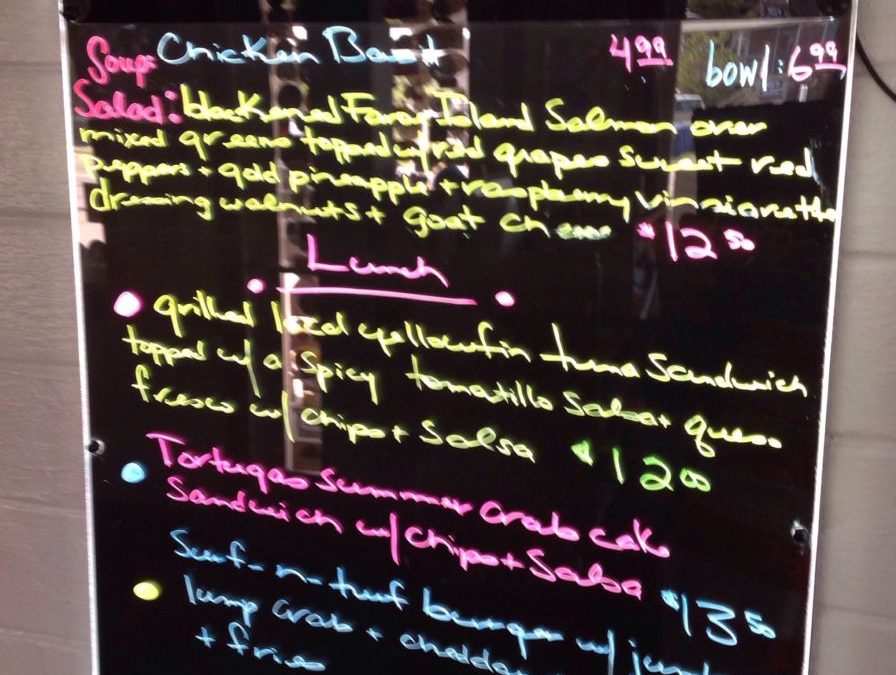 Soup: Chicken 4.99 bowl: 6.99
Salad: blackened Faroe Island Salmon over
mixed greens topped w/ red grapes sweet red
peppers + gold pineapple + raspberry vinaigrette
dressing walnuts + goat cheese $12.50
Lunch
grilled local yellowfin tuna Sandwich
topped w/ a Spicy tomatillo Salsa + queso
fresco w/ chips + Salsa $12.00
Tortugas Summer crab cake
Sandwich w/ chips + Salsa $13.50
Surf-n-turf burger w/
lump crab + chedda
+ fries